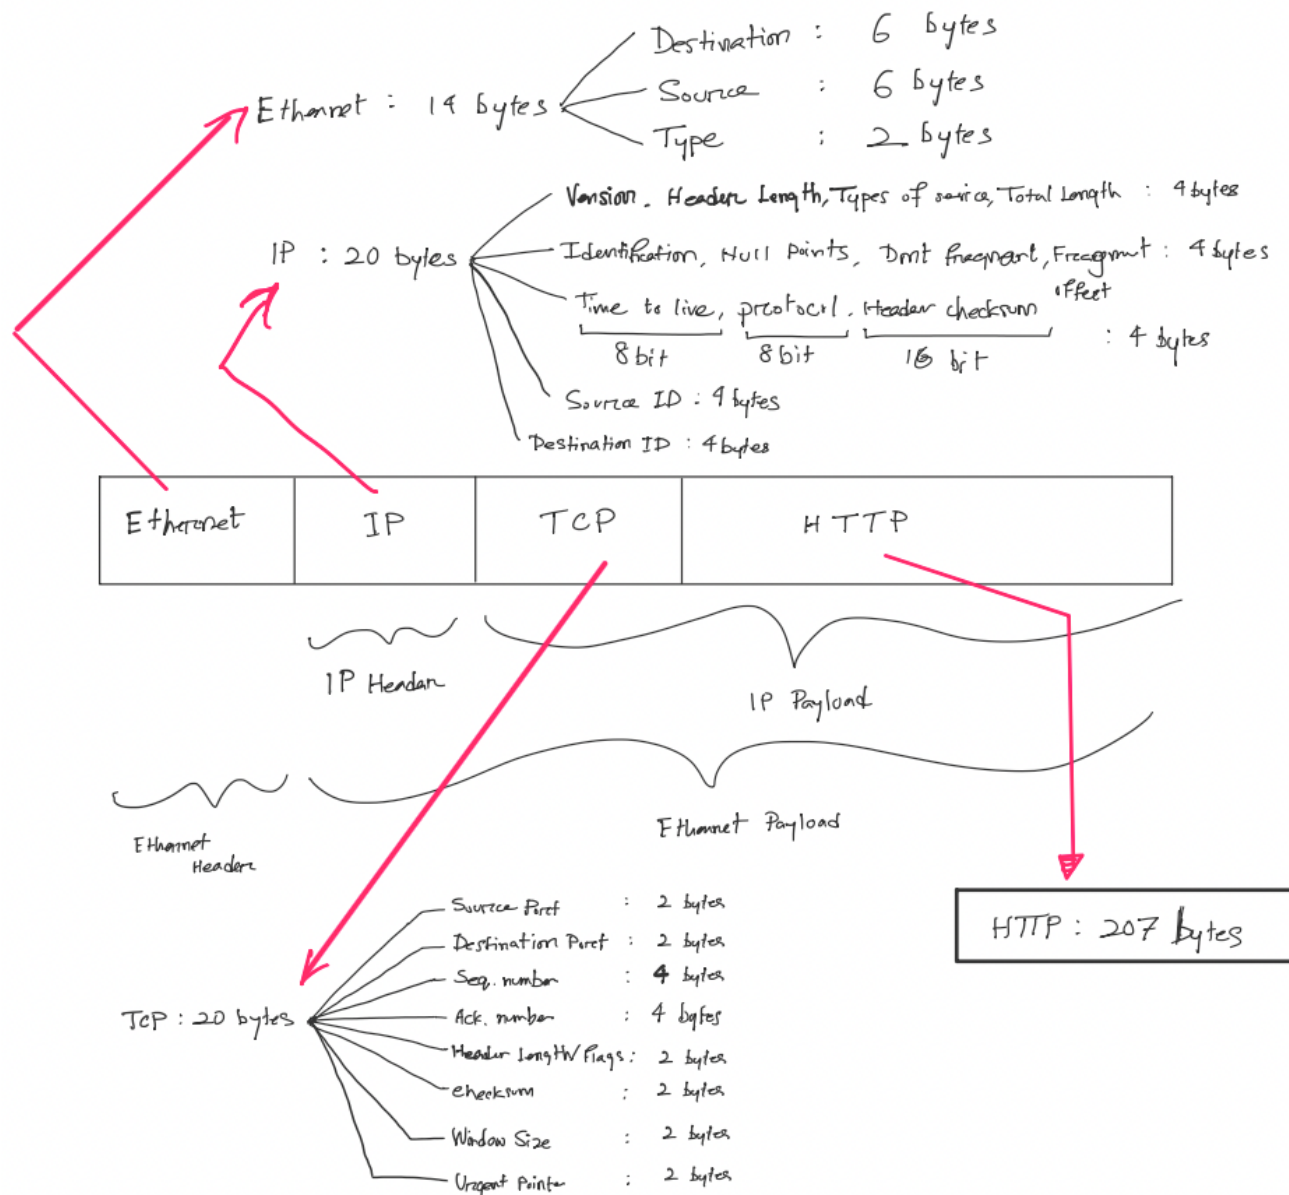 Destination : 6 bytes
Ethernet : 14 bytes
Source : 6 bytes
Type : 2 bytes
Version. Header Length, Types of service, Total Length : 4 bytes
IP : 20 bytes
Identification, Null Points, Dont fragment, Fragment offset : 4 bytes
Time to live, protocol. Header checksum : 4 bytes
8 bit 8 bit 16 bit
Source ID : 4 bytes
Destination ID : 4 bytes
Ethernet IP TCP HTTP
IP Header
IP Payload
Ethernet Header
Ethernet Payload
HTTP : 207 bytes
TCP : 20 bytes
Source Port : 2 bytes
Destination Port : 2 bytes
Seq. number : 4 bytes
Ack. number : 4 bytes
Header Length/Flags : 2 bytes
checksum : 2 bytes
Window Size : 2 bytes
Urgent Pointer : 2 bytes